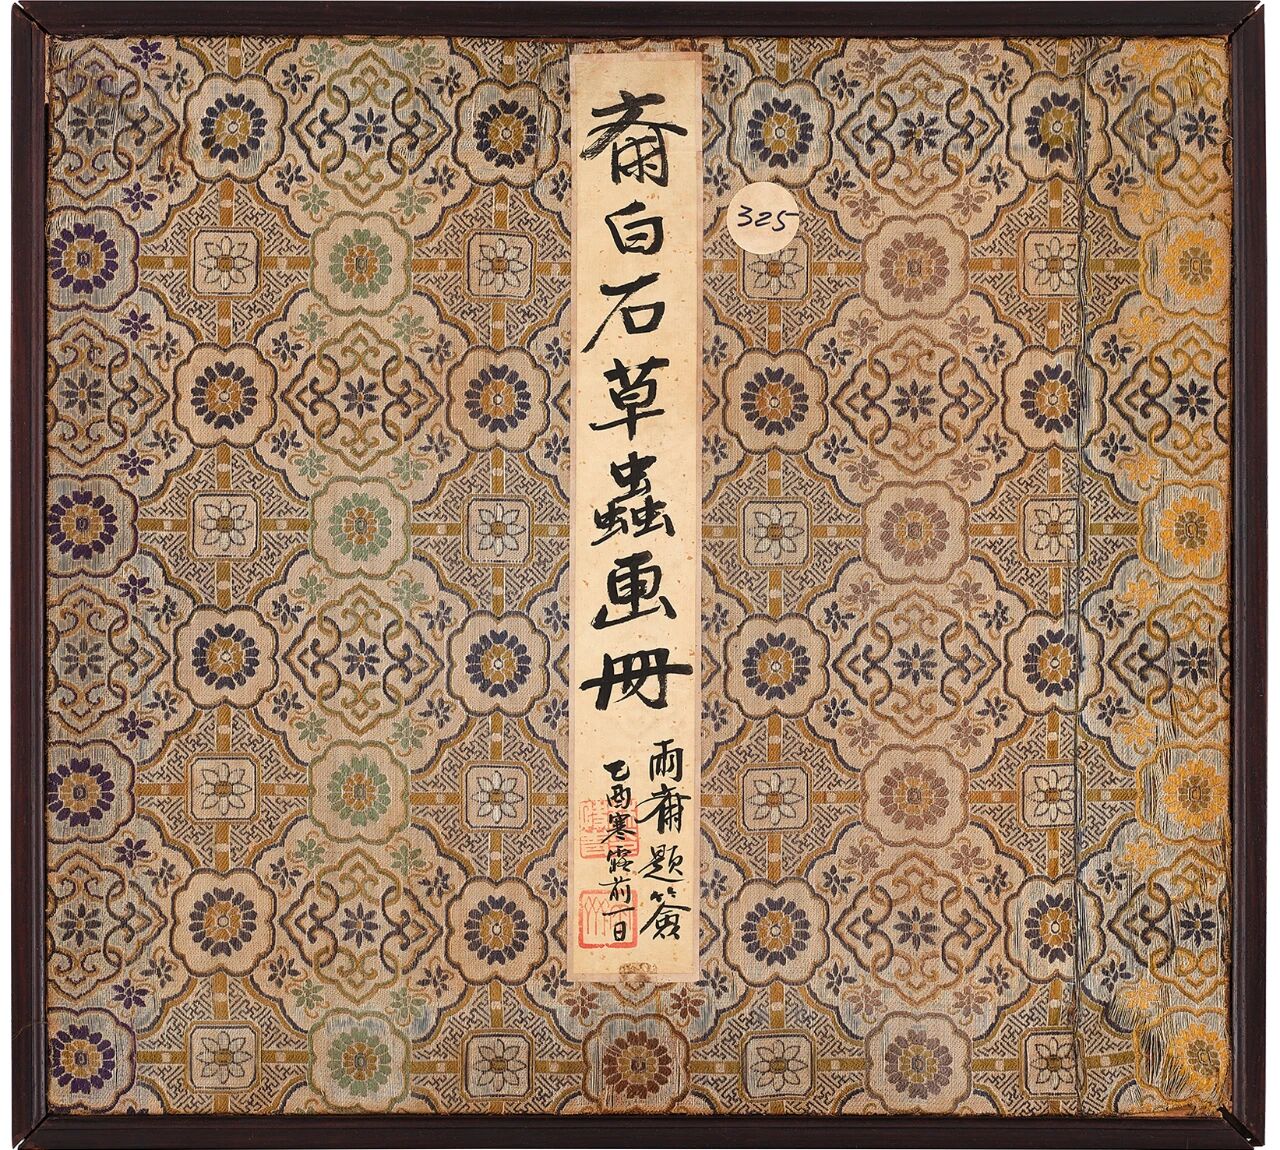 齋白石草蟲畫冊
雨齋題簽
乙酉寒露前一日
325